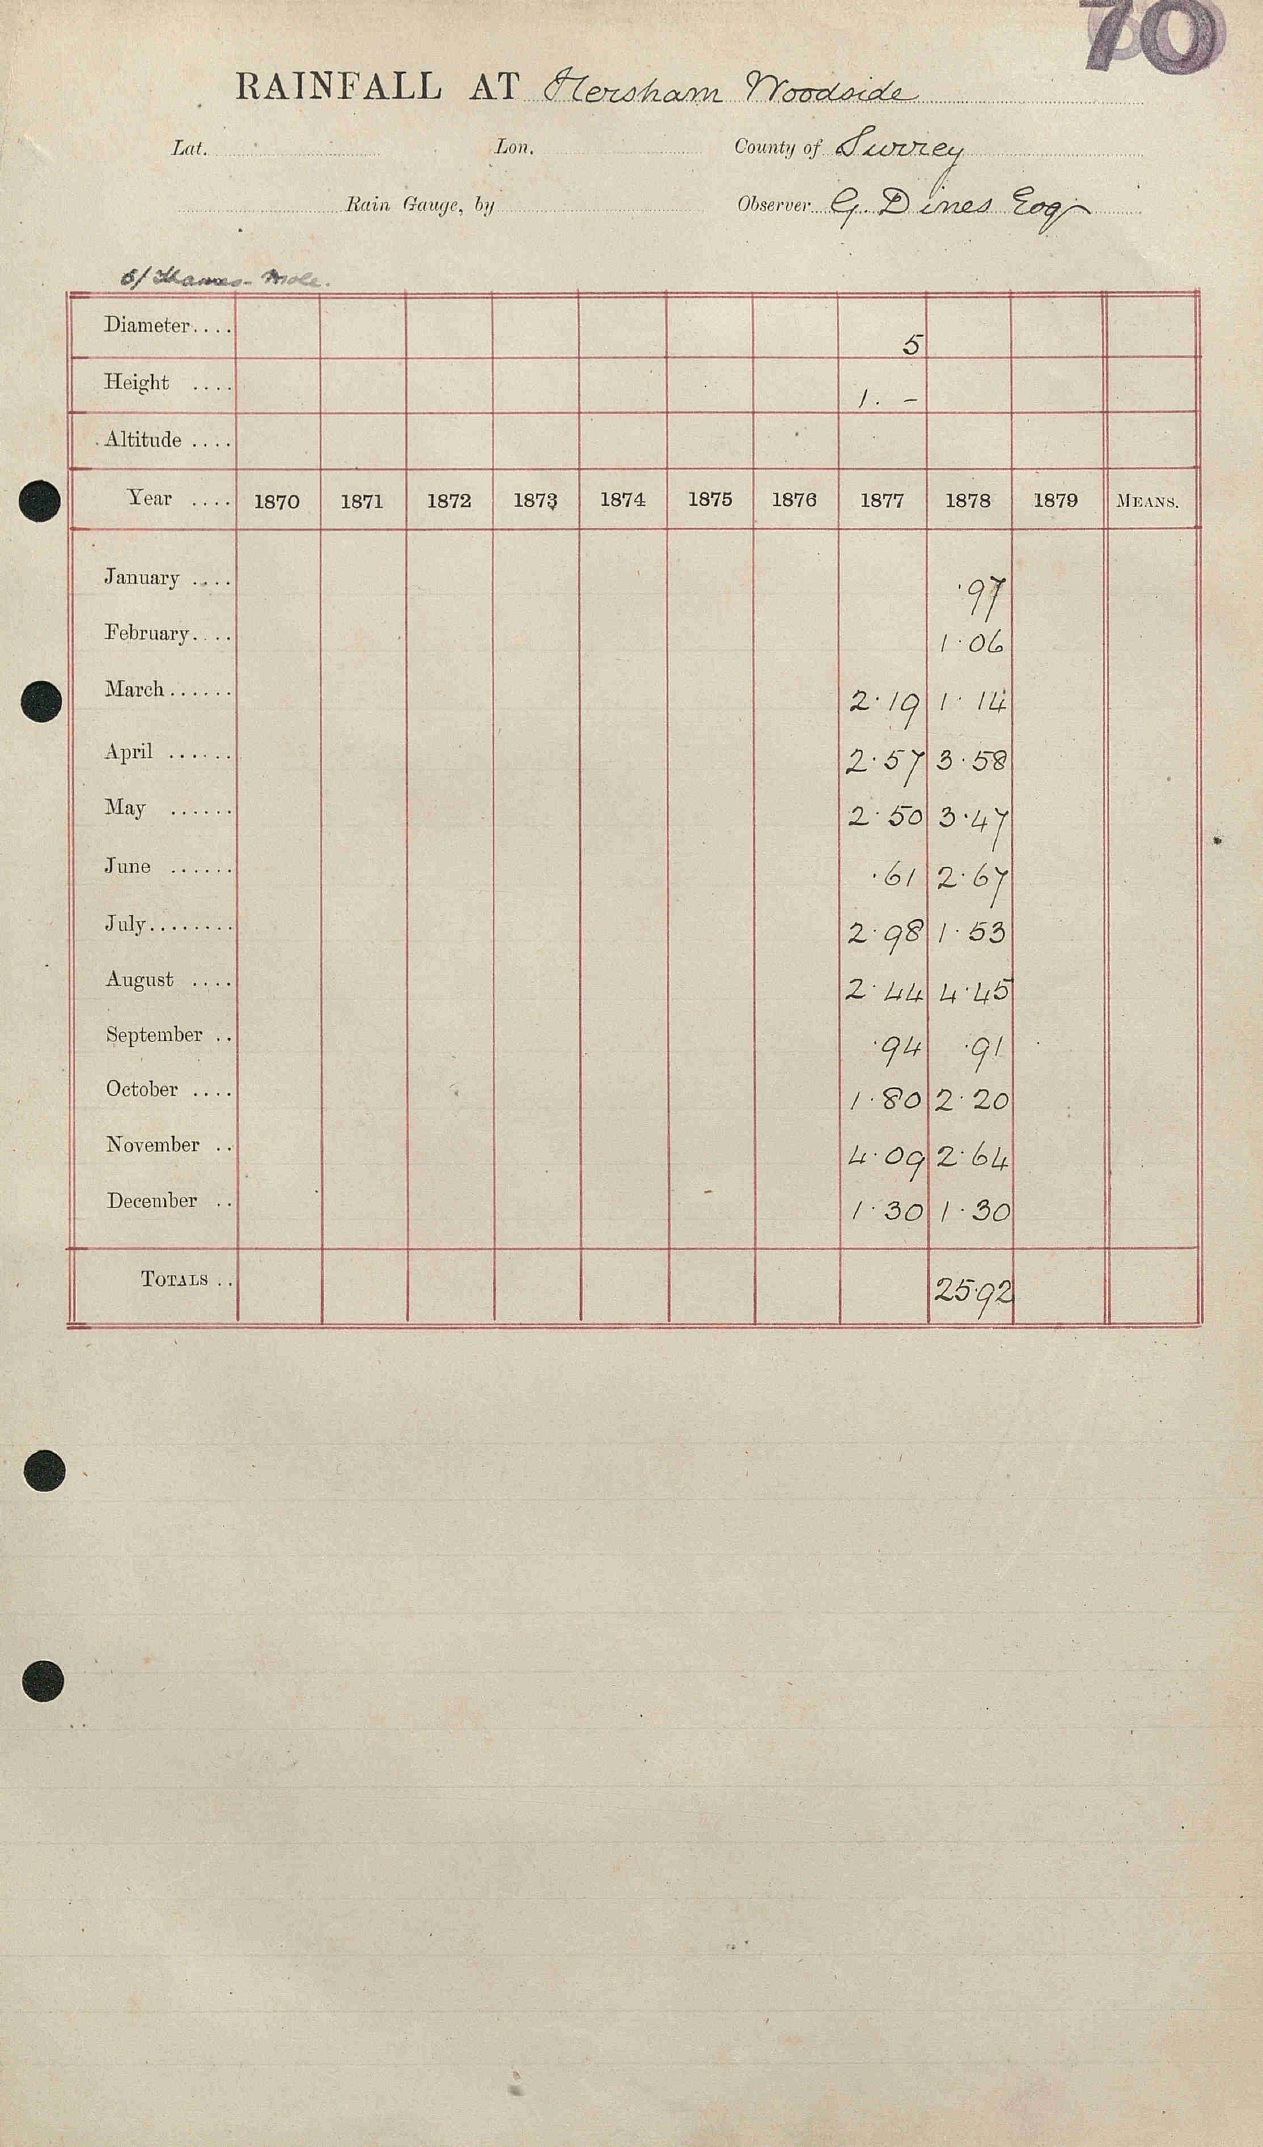 70
RAINFALL AT Hersham Woodside
Lat. Lon. County of Surrey
Rain Gauge, by Observer G. Dines Esq
6/ Thames - Mole.
Diameter.... 5
Height .... 1. -
Altitude ....
Year .... 1870 1871 1872 1873 1874 1875 1876 1877 1878 1879 MEANS.
January .... ·97
February.... 1·06
March...... 2·19 1·14
April ...... 2·57 3·58
May ...... 2·50 3·47
June ...... ·61 2·67
July........ 2·98 1·53
August .... 2·44 4·45
September .. ·94 ·91
October .... 1·80 2·20
November .. 4·09 2·64
December .. 1·30 1·30
TOTALS .. 25·92